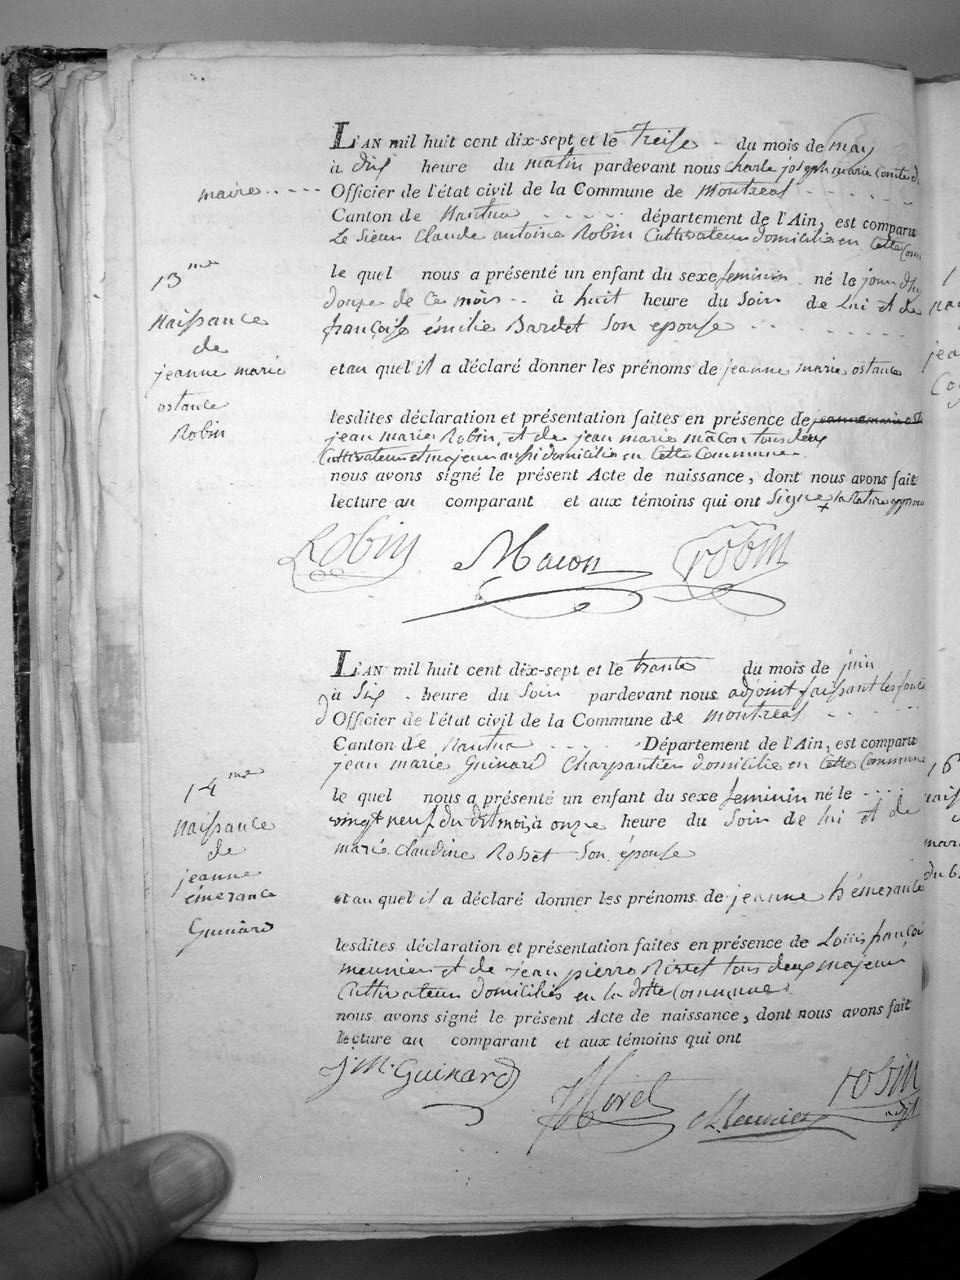 L'AN mil huit cent dix-sept et le treise - du mois de may
à dix heure du matin pardevant nous charle joseph marie comte d
maire..---
Officier de l'état civil de la Commune de montreal - - - - -
Canton de Nantua - - - - - département de l'Ain, est comparu
Le Sieur Claude antoine Robin Cultivateur domicilié en Cette Com
13me
Naissance
de
jeanne marie
ostance
Robin
le quel nous a présenté un enfant du sexe feminin né le jour d'hi
douze de ce mois - - à huit heure du Soir de Lui et de
françoise émilie Bardet Son epouse - - - - -
et au quel il a déclaré donner les prénoms de jeanne marie ostance
lesdites déclaration et présentation faites en présence de
jean marie Robin, et de jean marie mâcon tous deux
Cultivateur et majeur aussi domicilié en Cette Commune.
nous avons signé le présent Acte de naissance, dont nous avons fait
lecture au comparant et aux témoins qui ont Signe + la Rature approu
Robin Macon robin
L'AN mil huit cent dix-sept et le trante du mois de juin
à Six - heure du Soir pardevant nous adjoint faissant les fonc
Officier de l'état civil de la Commune de montreal - - - - -
Canton de Nantua - - - - Département de l'Ain, est comparu
jean marie Guinard Charpantier domicilié en Cette Commune
14me
Naissance
de
jeanne
émerance
Guinard
le quel nous a présenté un enfant du sexe feminin né le - - -
vingt neuf du dit mois, à onze heure du Soir de lui et de
marie Claudine Rosset Son épouse
et au quel il a déclaré donner les prénoms de jeanne h'émerance
lesdites déclaration et présentation faites en présence de Louis françoi
meunier et de jean pierre tous deux majeur
Cultivateur domicilié en la ditte Commune.
nous avons signé le présent Acte de naissance, dont nous avons fait
lecture au comparant et aux témoins qui ont
J. M. Guinard Meunier robin